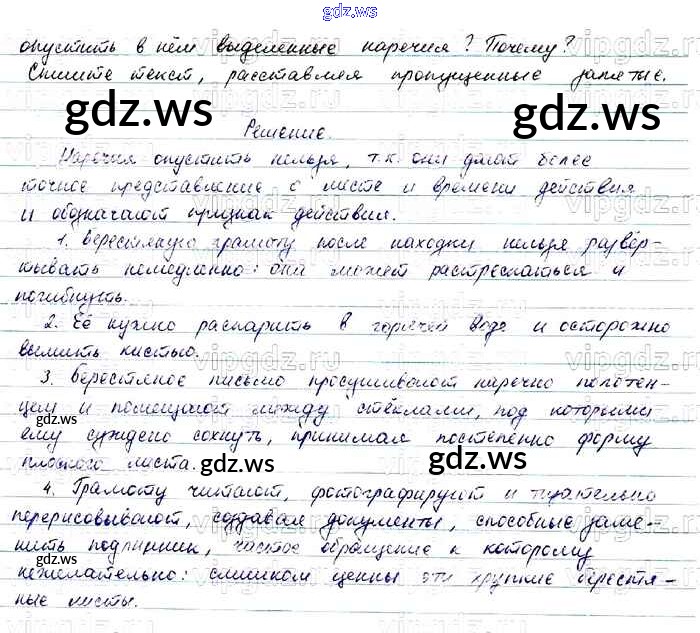 gdz.ws
опустить в нём выделенные наречия? Почему?
Спишите текст, расставляя пропущенные запятые.
gdz.ws gdz.ws
Решение.
Наречия опустить нельзя, т.к. они дают более
точное представление о месте и времени действия
и обозначают признак действия.
1. Берестяную грамоту после находки нельзя развёр-
тывать немедленно: она может растрескаться и
погибнуть.
2. Её нужно распарить в горячей воде и осторожно
вымыть кистью.
3. Берестяное письмо просушивают наречно полотен-
цем и помещают между стёклами, под которыми
gdz.ws
ему суждено сохнуть, принимая постепенно форму
плоского листа.
gdz.ws gdz.ws
4. Грамоту читают, фотографируют и тщательно
перерисовывают, создавая документы, способные заме-
gdz.ws
нить подлинник, частое обращение к которому
gdz.ws
нежелательно: слишком ценны эти хрупкие берестя-
ные листы.